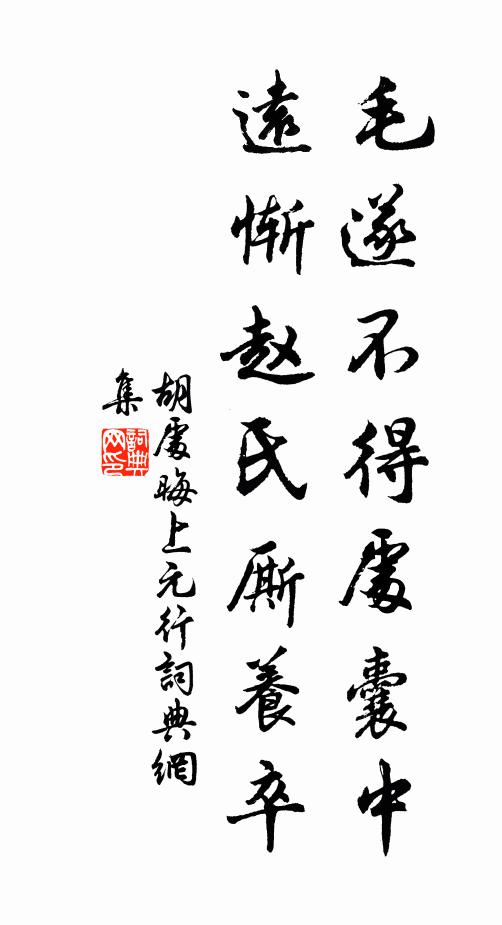 毛遂不得處囊中
遠慚趙氏廝養卒
胡處晦上元行詞典網
集
詞典
网印